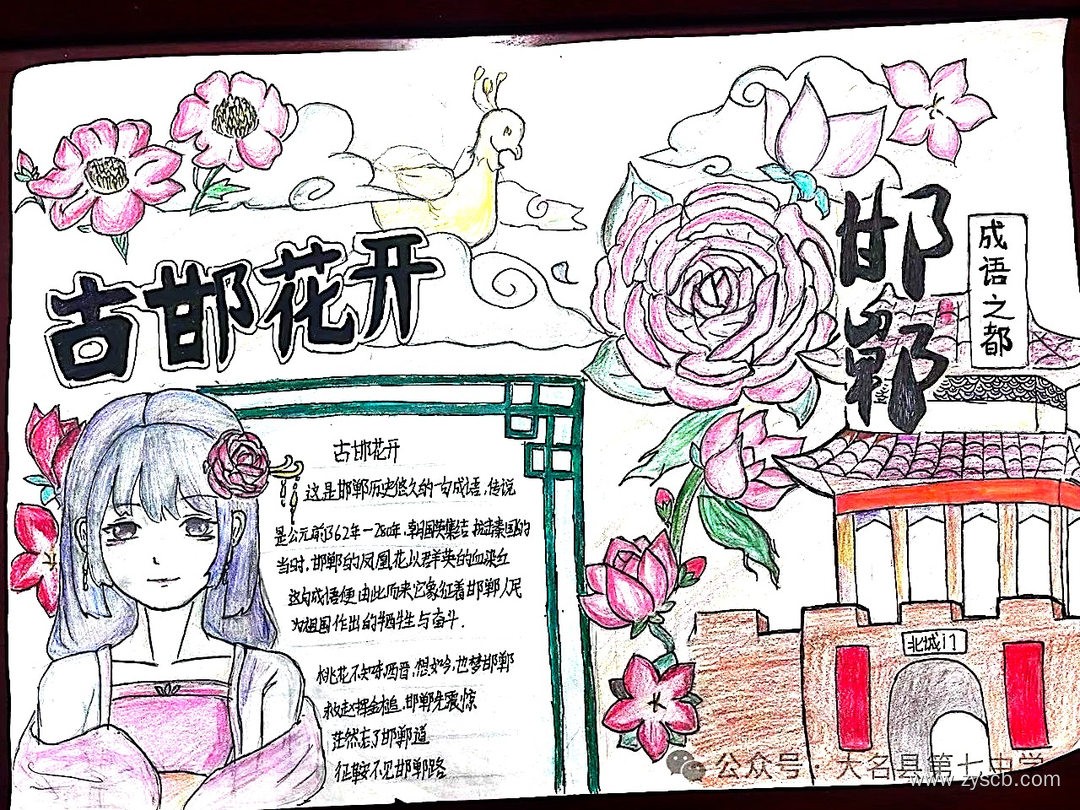 古邯花开
邯郸
成语之都
古邯花开
这是邯郸历史悠久的一句成语,传说
是公元前362年-280年,朝国英集结,抵击秦国的
当时,邯郸的凤凰花以群英的血染红
这句成语便由此而来它象征着邯郸人民
为祖国作出的牺牲与奋斗.
桃花不知味西晋,想如今,也梦邯郸
救赵挥金槌,邯郸先震惊
茫然忘了邯郸道
征鞍不见邯郸路
北城门
公众号·大名县第七中学
www.zyscb.com